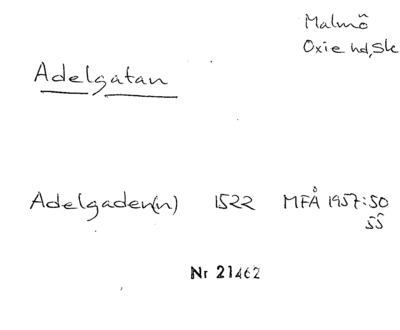 Malmö
Oxie hd, Sk
Adelgatan
Adelgaden(n) 1522 MFÅ 1957:50
55
Nr 21462